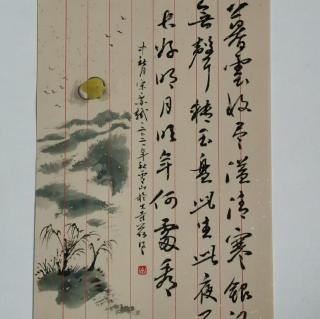 暮雲收盡溢清寒銀
無聲轉玉盤此生此夜
长好明月明年何處看
中秋月宋苏轼二〇二一年秋雲山於